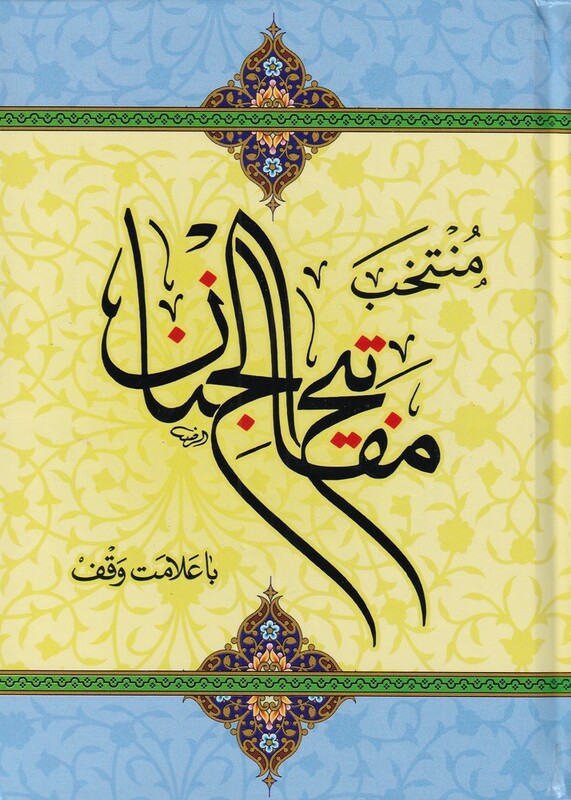 مُنْتَخَب
مفاتیح الجنان
با عَلامَت وَقْف